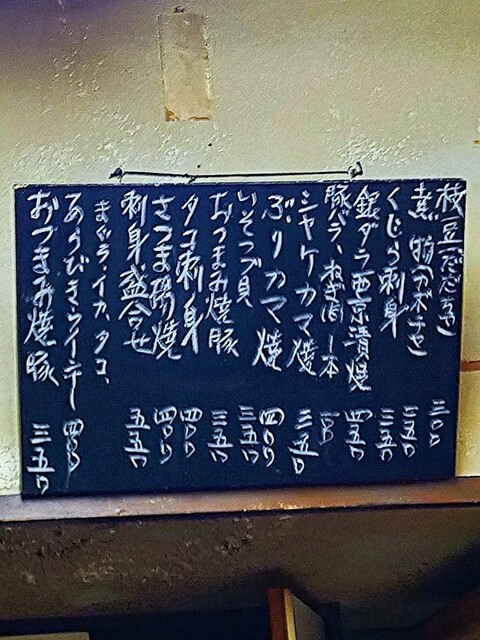 枝豆(だだちゃ) 三〇〇
煮物(カボチャ) 三五〇
くじら刺身 三五〇
銀ダラ西京漬焼 四五〇
豚バラ、ねぎ間 一本 一〇〇
シャケカマ焼 三五〇
ぶりカマ焼 四〇〇
いそつぶ貝 三五〇
おつまみ焼豚 三五〇
タコ刺身 四〇〇
さつま揚焼 四〇〇
刺身盛合せ 五五〇
まぐろ、イカ、タコ、
あらびきウインナー 四〇〇
おつまみ焼豚 三五〇